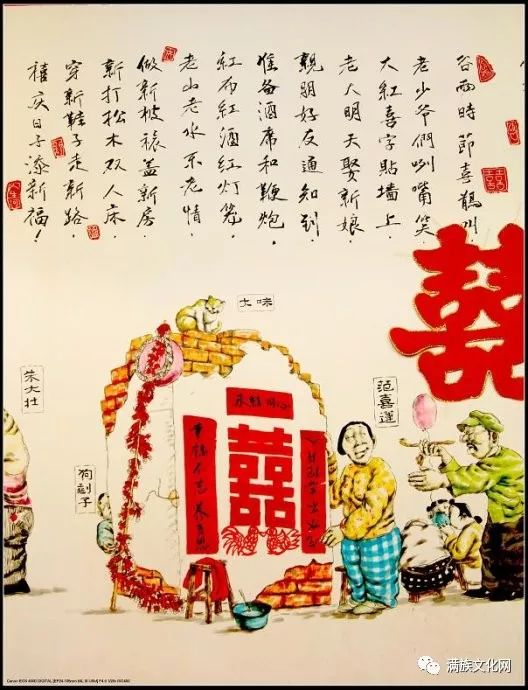 谷雨時節喜鵲叫·
老少爷們咧嘴笑·
大紅喜字貼墙上·
老人明天娶新娘·
親朋好友通知到·
准备酒席和鞭炮·
紅布紅酒红灯笼·
老山老水不老情
做新被褥盖新房·
新打松木双人床·
穿新鞋子走新路·
禧庆日子添新福!
囍
大咪
范喜蓮
朱大壮
狗剩子
永結同心
囍
满族文化网